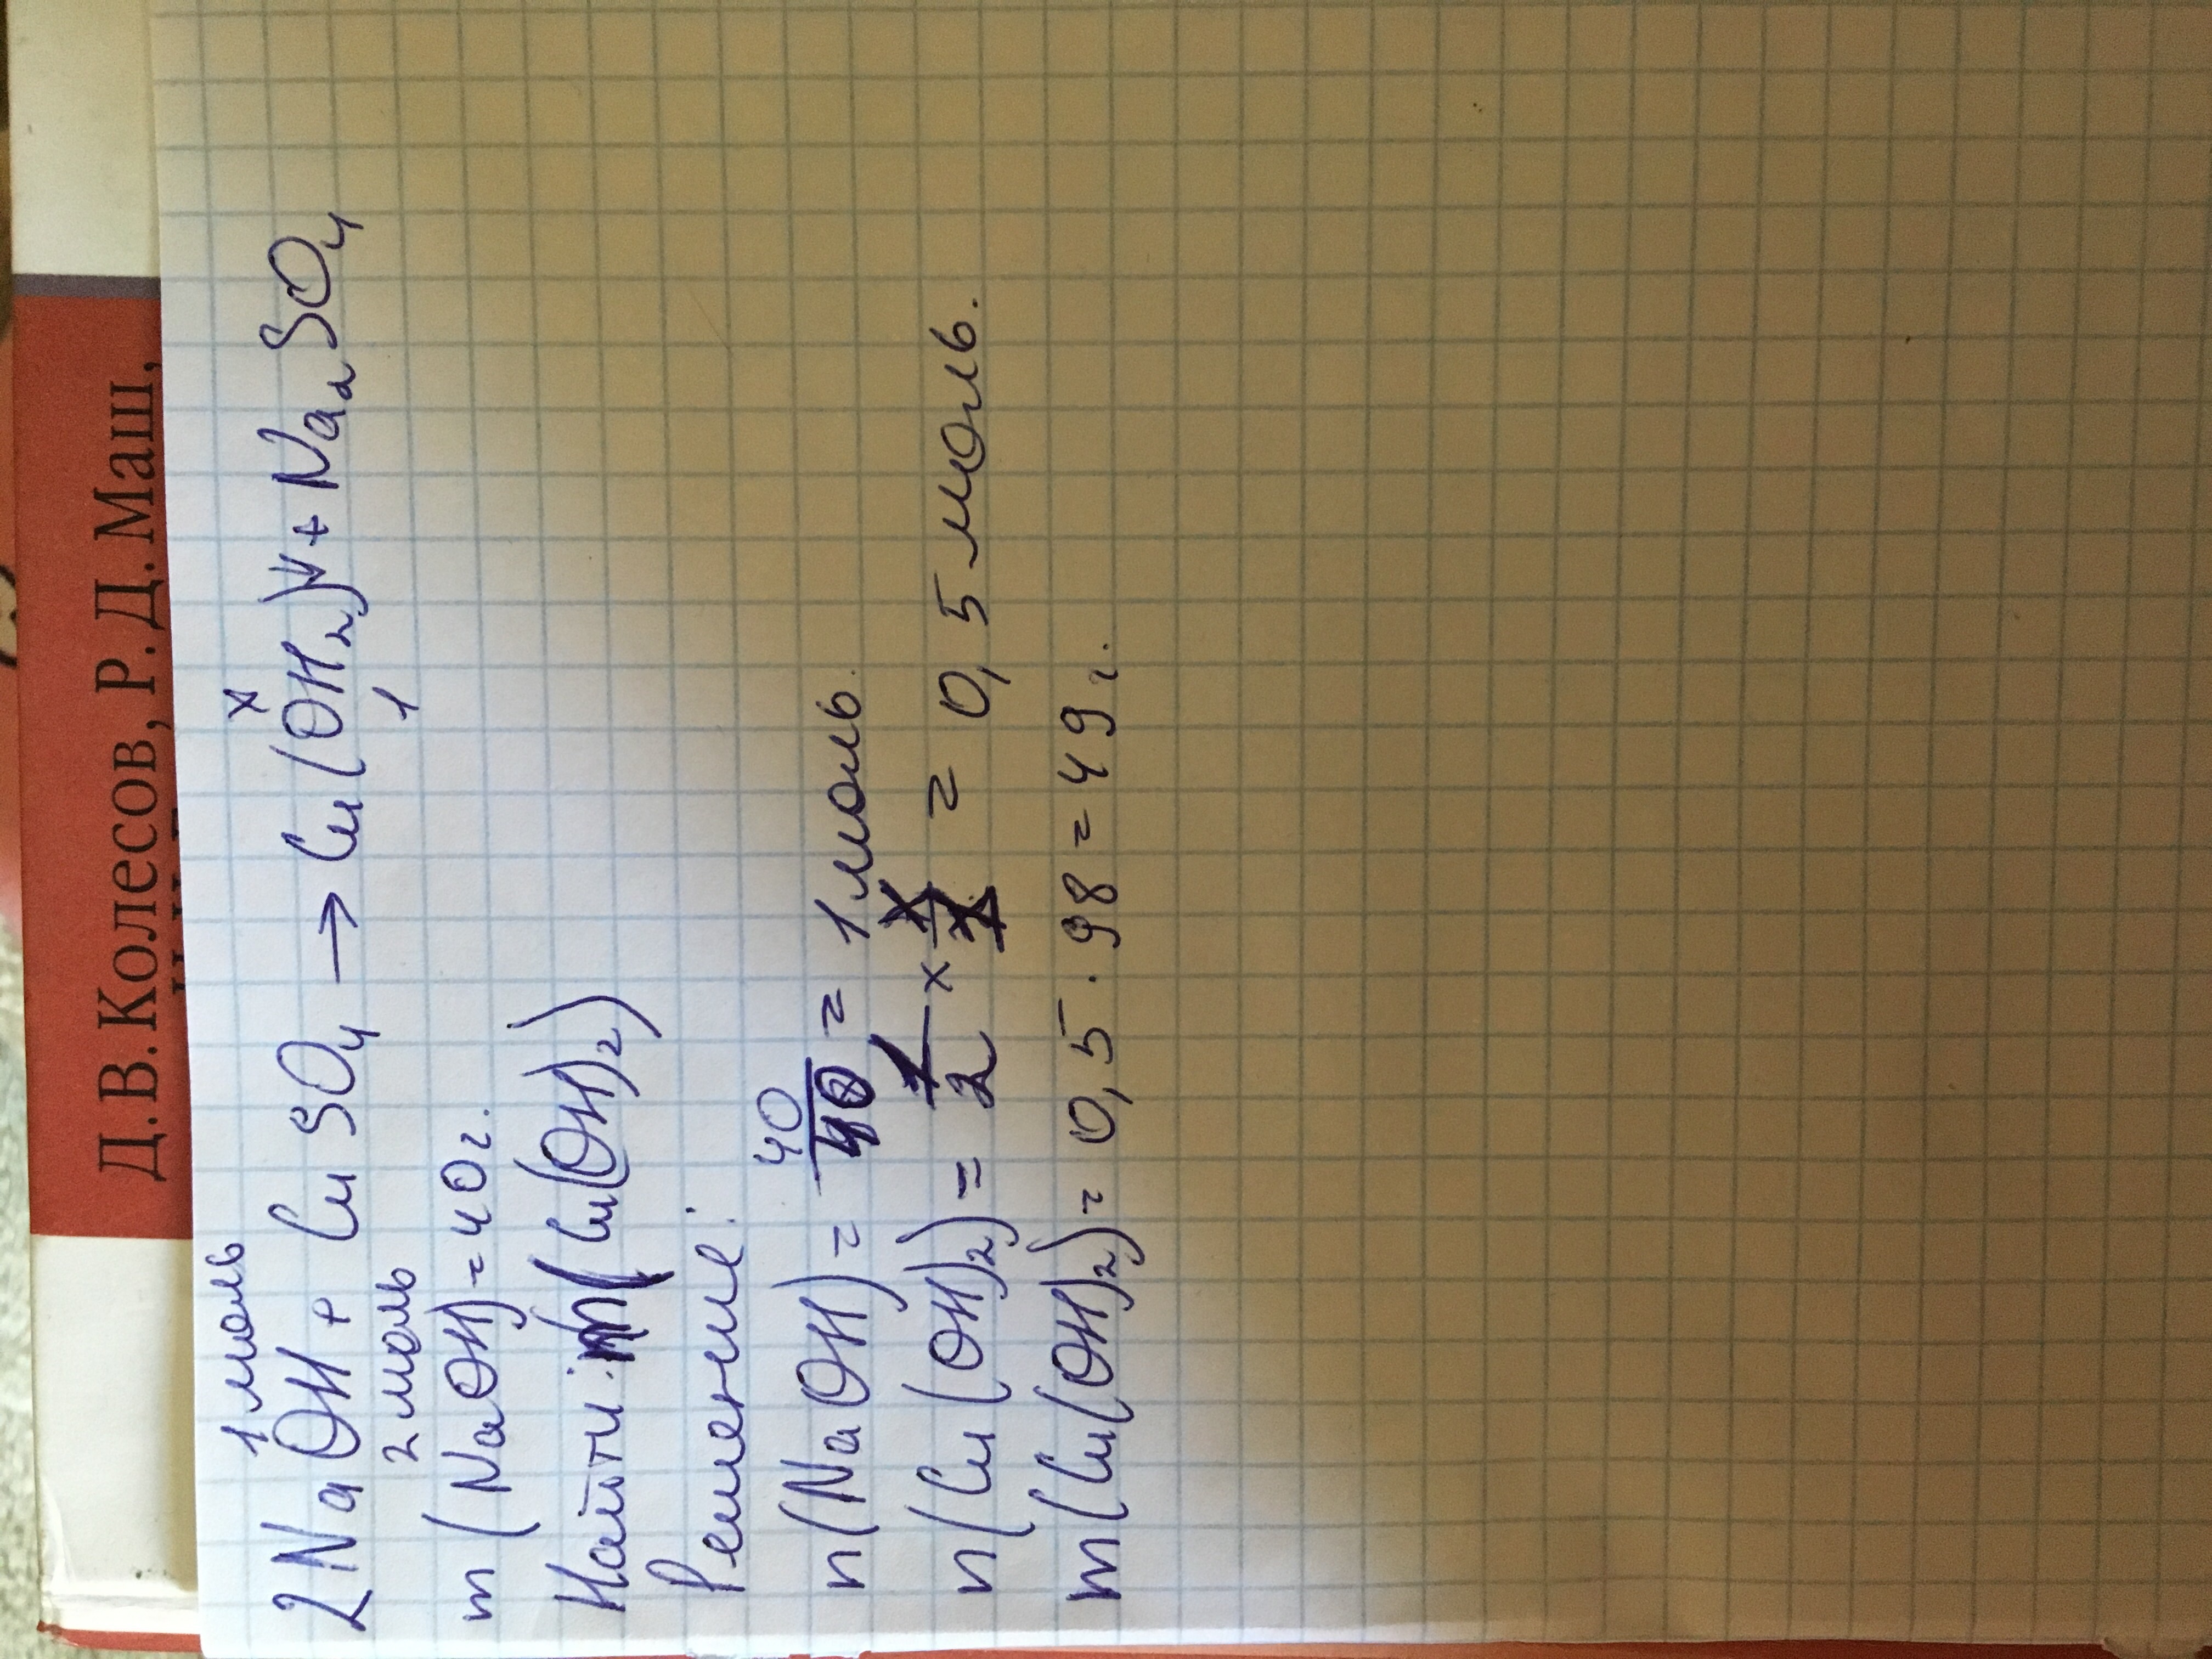 Д. В. Колесов, Р. Д. Маш,
1 моль x
2NaOH + CuSO4 → Cu(OH2)↓ + Na2SO4
2 моль 1
m(NaOH) = 40 г.
Найти: m(Cu(OH)2)
Решение:
n(NaOH) = 40/40 = 1 моль.
n(Cu(OH)2) = 1/2 × x/1 = 0,5 моль.
m(Cu(OH)2) = 0,5 · 98 = 49 г.